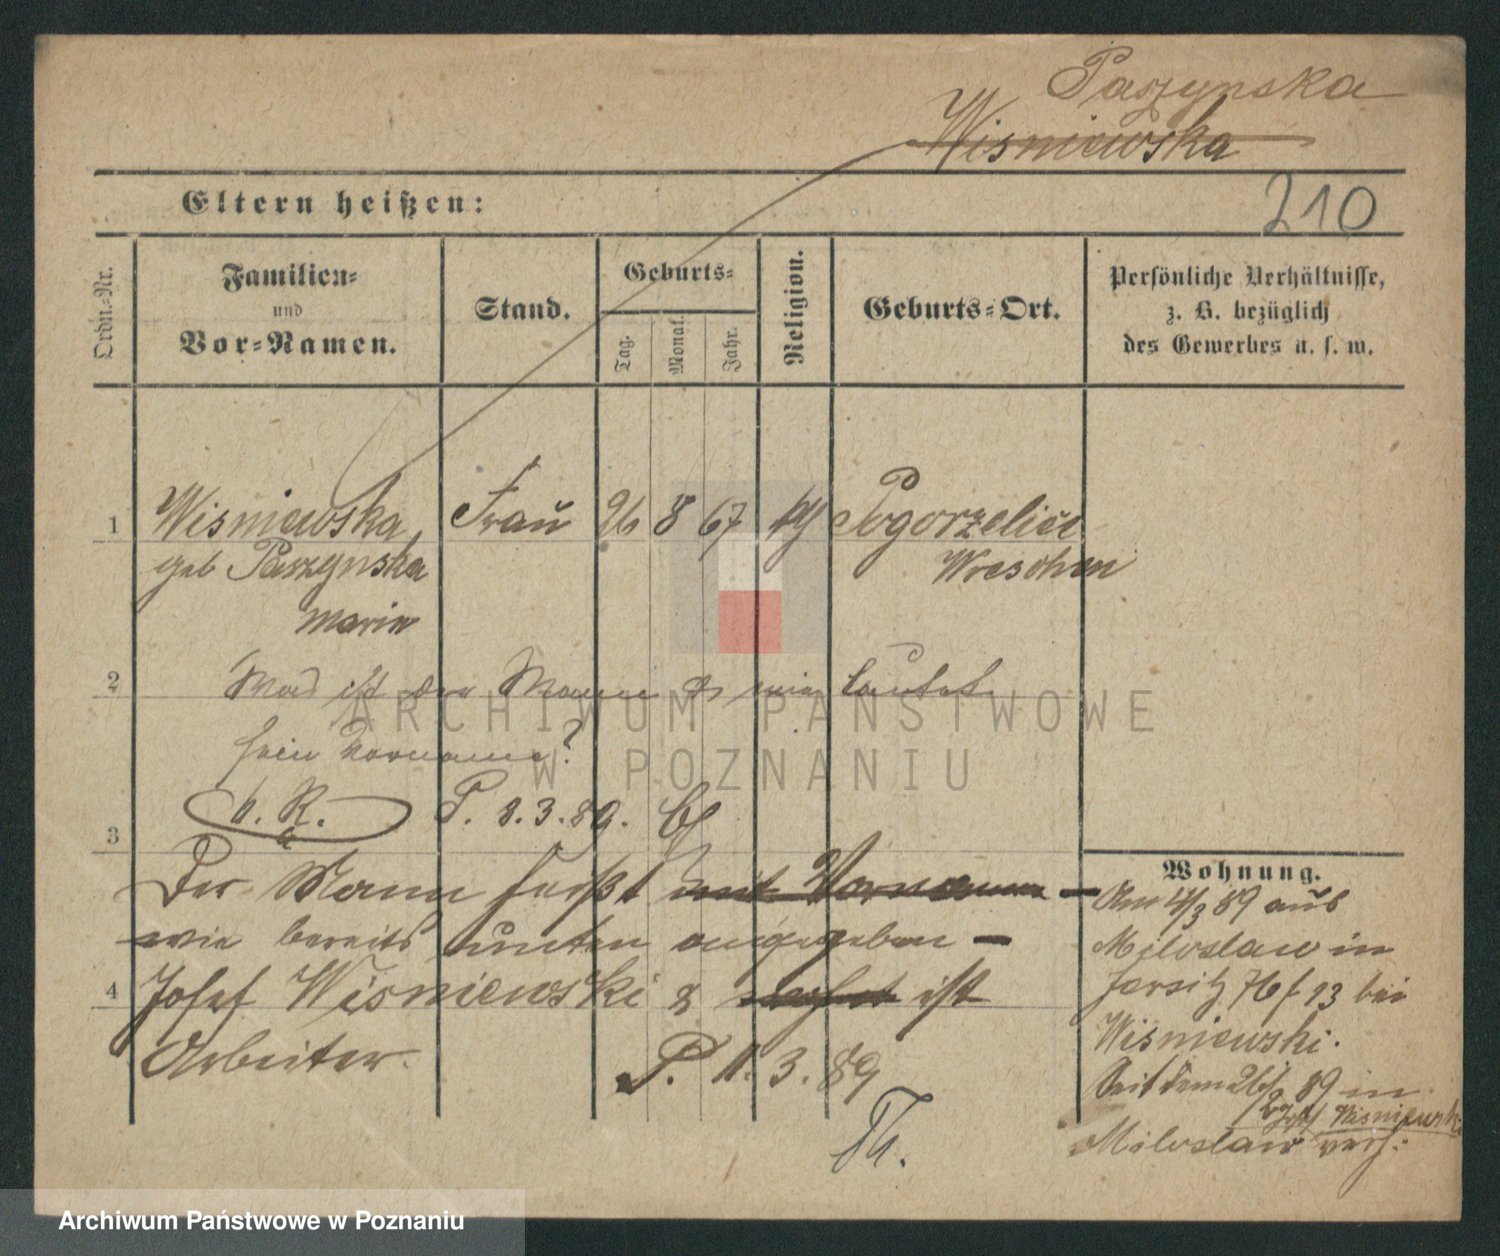 Paszynska
Wisniewska
Eltern heißen:
210
Ordn.-Nr.
Familien-
und
Vor-Namen.
Stand.
Geburts-
Tag.
Monat.
Jahr.
Religion.
Geburts-Ort.
Persönliche Verhältnisse,
z. B. bezüglich
des Gewerbes u. s. w.
1 Wisniewska Frau 26 8 67 Pogorzelice
geb Paszynska Wreschen
Marie
2 Was ist der Mann & wie lautet
sein Vorname?
b. R. P. 8.3.89.
3
Der Mann heißt mit Vornamen —
wie bereits unten angegeben —
4 Josef Wisniewski & ist
Arbeiter.
P. 11.3.89
Wohnung.
Am 4/3 89 aus
Miloslaw in
Jersitz 76 f 13 bei
Wisniewski.
Seit dem 89 in
Josef Wisniewski
Miloslaw verz:
ARCHIWUM PAŃSTWOWE
W POZNANIU
Archiwum Państwowe w Poznaniu